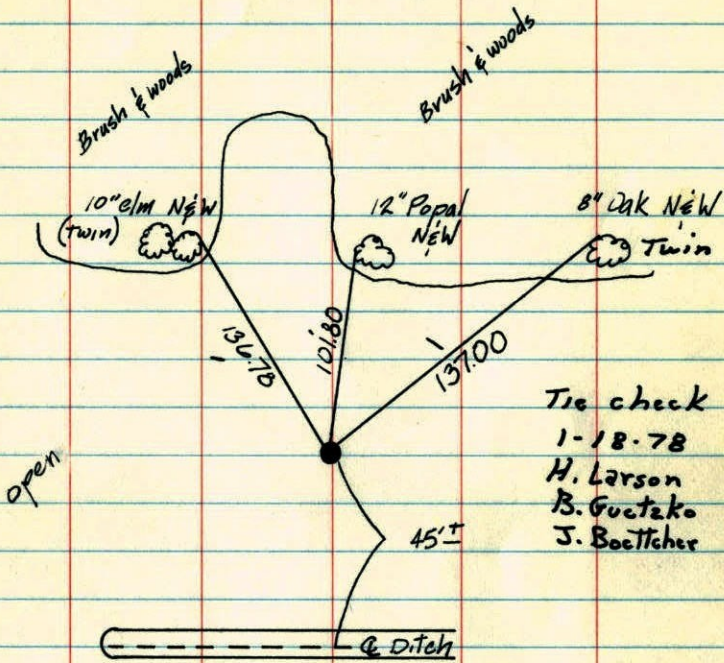 Brush & woods
Brush & woods
10" elm N&W
(twin)
12" Popal
N&W
8" Oak N&W
Twin
136.78
101.80
137.00
Tie check
1-18-78
H. Larson
B. Guetzko
J. Boettcher
open
45'±
℄ Ditch